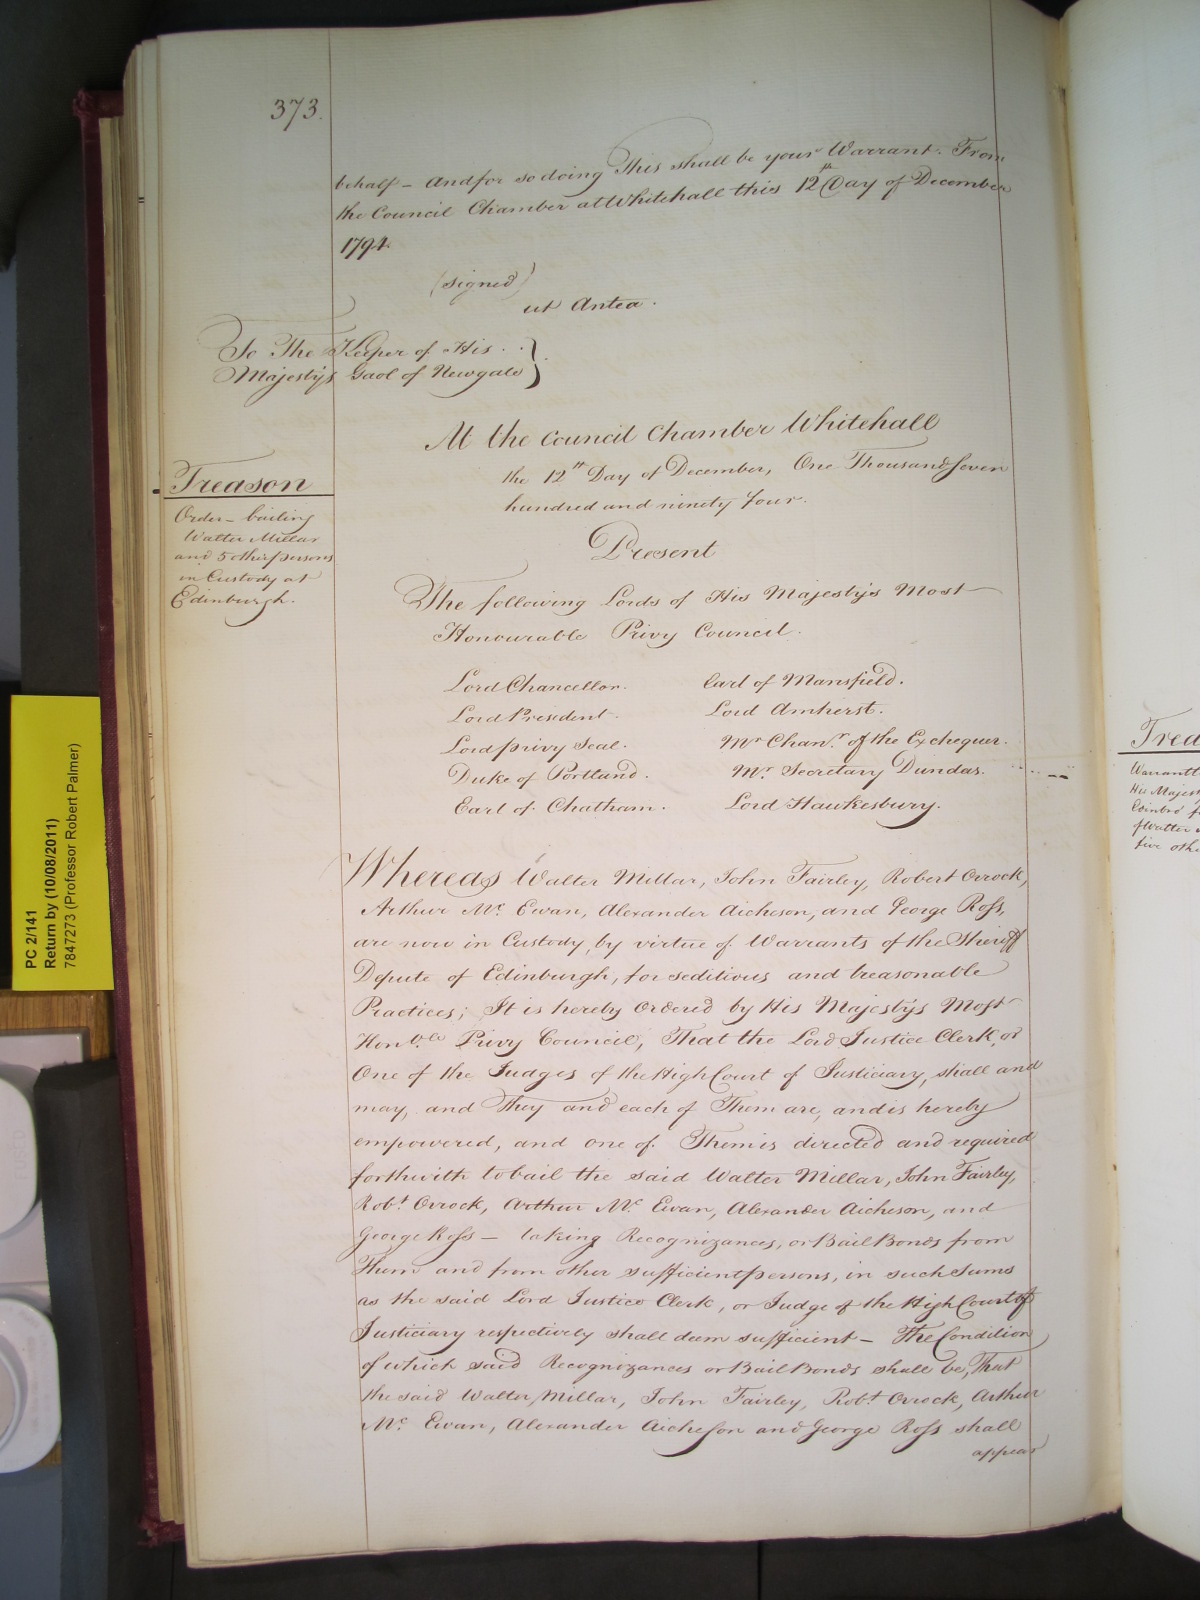 373.
behalf – and for so doing This shall be your Warrant. From
the Council Chamber at Whitehall this 12th Day of December
1794.
(signed)
ut Antea.
To The Keeper of His
Majesty's Gaol of Newgate
At the Council Chamber Whitehall
the 12th Day of December, One Thousand seven
hundred and ninety Four.
Treason
Order – bailing
Walter Millar
and 5 other persons
in Custody at
Edinburgh.
Present
The following Lords of His Majesty's Most
Honourable Privy Council.
Lord Chancellor. Earl of Mansfield.
Lord President. Lord Amherst.
Lord privy Seal. Mr Chanr. of the Exchequer.
Duke of Portland. Mr. Secretary Dundas.
Earl of Chatham. Lord Hawkesbury.
Whereas Walter Millar, John Fairley, Robert Orrock,
Arthur Mc. Ewan, Alexander Aicheson, and George Ross,
are now in Custody, by virtue of Warrants of the Sheriff
Depute of Edinburgh, for seditious and treasonable
Practices; It is hereby Ordered by His Majesty's Most
Honble Privy Council, That the Lord Justice Clerk, or
One of the Judges of the High Court of Justiciary, shall and
may, and They and each of Them are, and is hereby
empowered, and one of Them is directed and required
forthwith to bail the said Walter Millar, John Fairley,
Robt. Orrock, Arthur Mc. Ewan, Alexander Aicheson, and
George Ross – taking Recognizances, or Bail Bonds from
Them and from other sufficient persons, in such Sums
as the said Lord Justice Clerk, or Judge of the High Court of
Justiciary respectively shall deem sufficient – The Condition
of which said Recognizances or Bail Bonds shall be, That
the said Walter Millar, John Fairley, Robt. Orrock, Arthur
Mc. Ewan, Alexander Aicheson and George Ross shall
appear
PC 2/141
Return by (10/08/2011)
7847273 (Professor Robert Palmer)
Trea
Warrant
His Majest
Edinbro' f
five othe